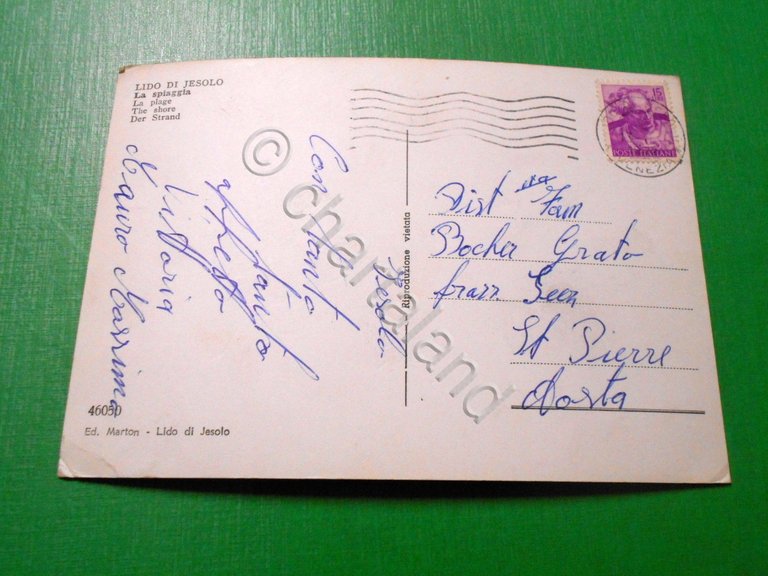 LIDO DI JESOLO
La spiaggia
La plage
The shore
Der Strand
Jesolo
Con tanto
tanto
affetto
Vittoria
Mauro Massimo
46030
Ed. Marton - Lido di Jesolo
Riproduzione vietata
15
POSTE ITALIANE
VENEZIA
Dist Fam
Bocher Grato
fraz
St Pierre
Aosta
© chartaland